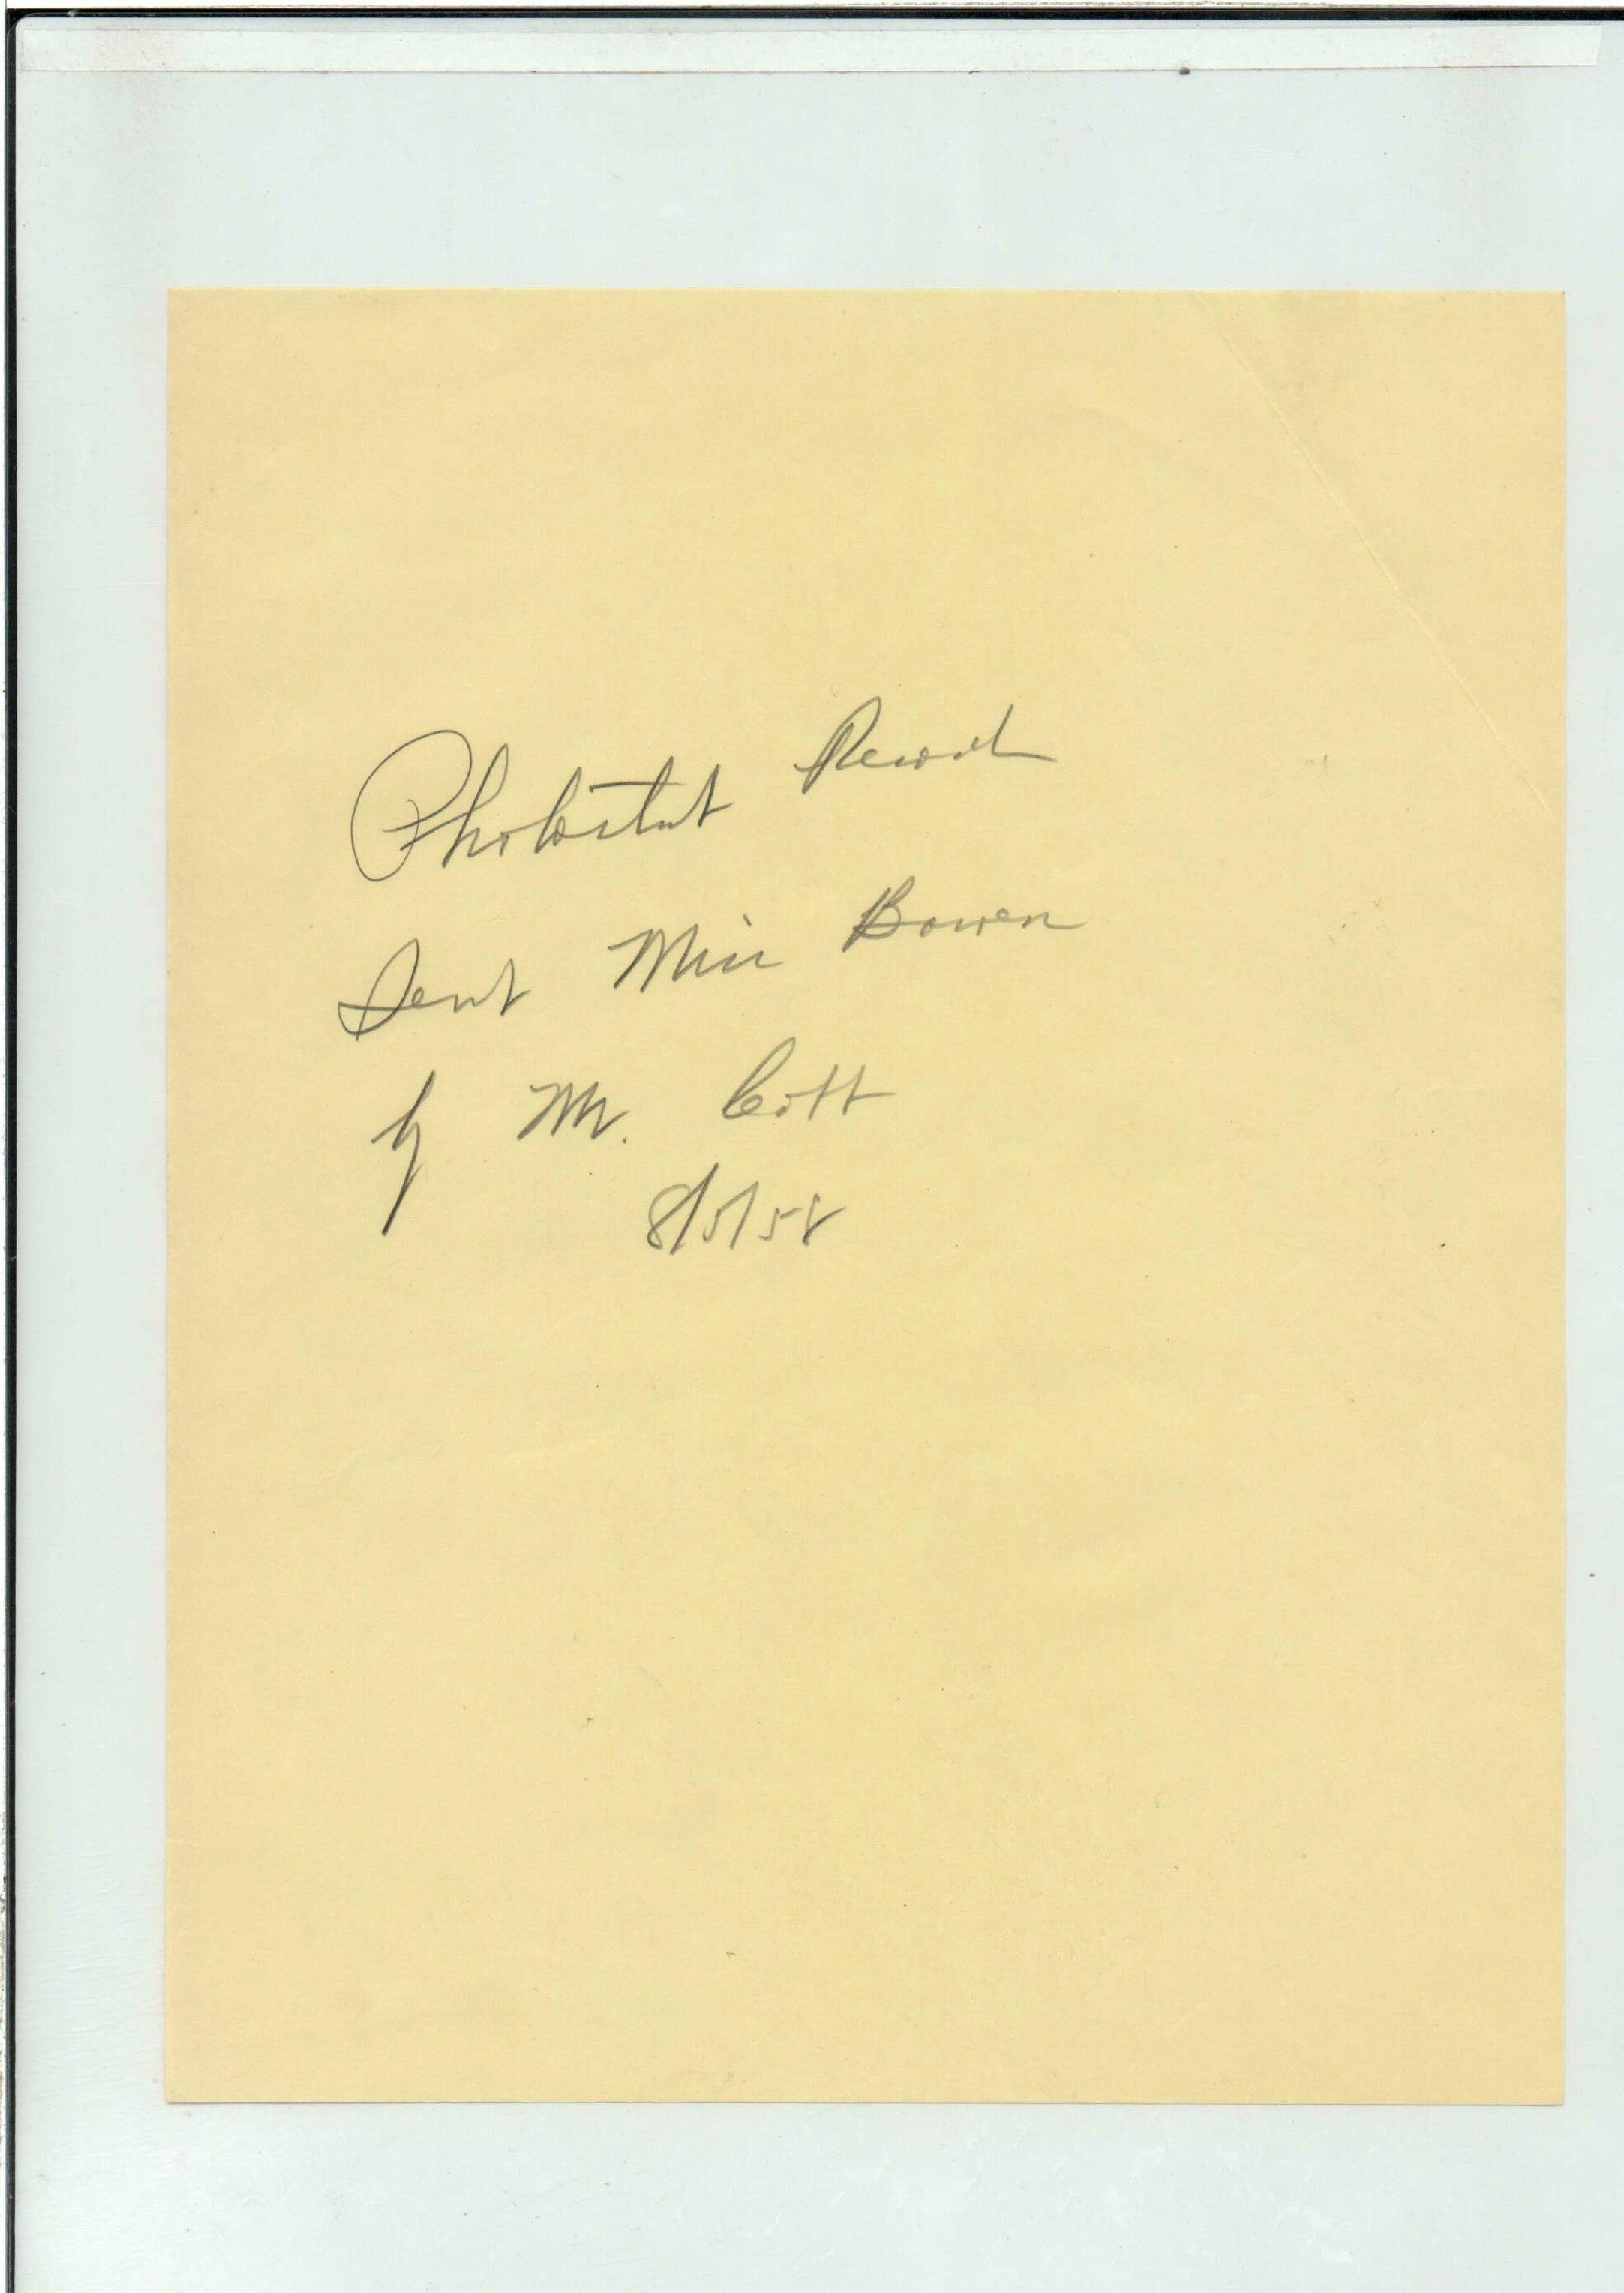 Photostat Record
Sent Miss Bowen
by Mr. Cott
8/5/58